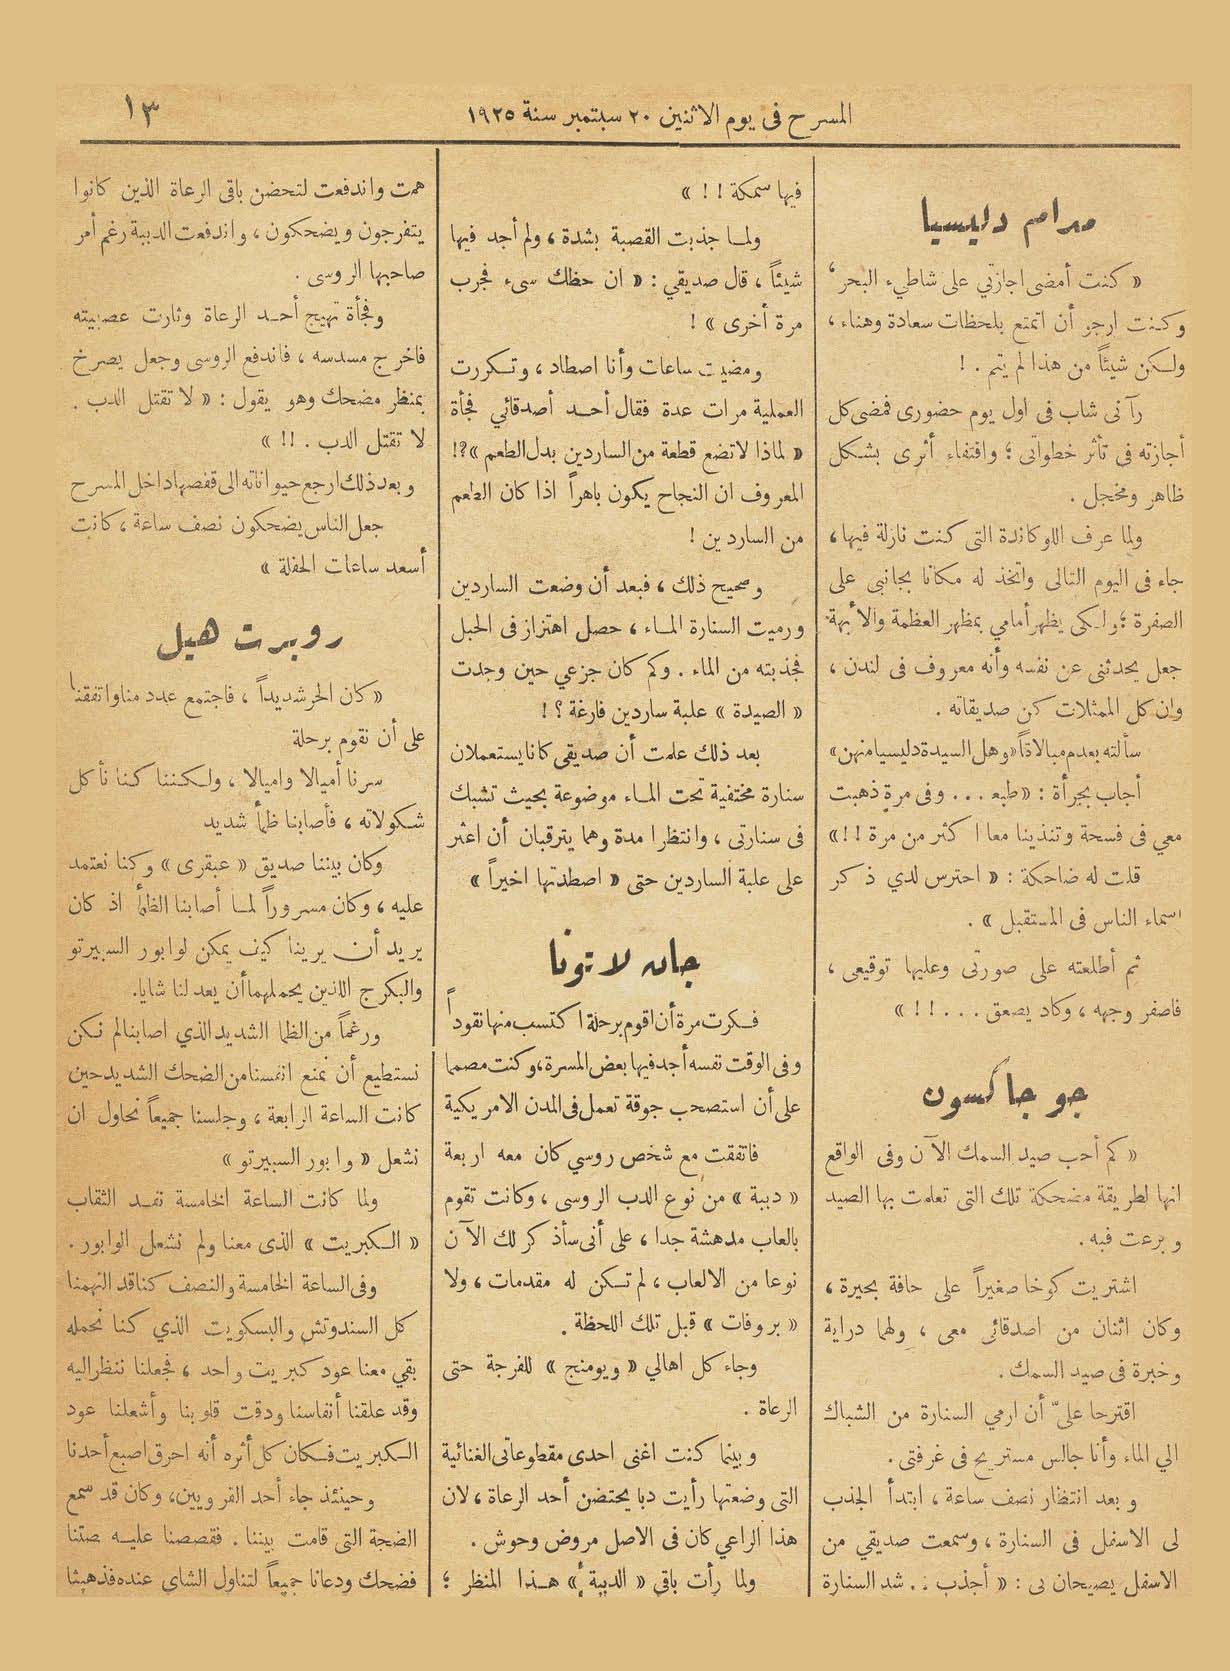 المسرح فى يوم الاثنين ٢٠ سبتمبر سنة ١٩٢٥
١٣
مدام دليسيا
« كنت أمضى اجازتي على شاطىء البحر ،
وكنت ارجو أن اتمتع بلحظات سعادة وهناء ،
ولكن شيئاً من هذا لم يتم . !
رآنى شاب فى اول يوم حضورى فمضى كل
أجازته فى تأثر خطواتى ؛ واقتفاء أثرى بشكل
ظاهر ومخجل .
ولما عرف اللوكاندة التى كنت نازلة فيها ،
جاء فى اليوم التالى واتخذ له مكانا بجانبي على
الصفرة ؛ ولكى يظهر أمامي بمظهر العظمة والأبهة
جعل يحدثنى عن نفسه وأنه معروف فى لندن ،
وان كل الممثلات كن صديقاته .
سألته بعدم مبالاة «وهل السيدة دليسيا منهن»
أجاب بجرأة : « طبعـ . . . وفى مرة ذهبت
معي فى فسحة وتغذينا معا اكثر من مرة ! ! »
قلت له ضاحكة : « احترس لدي ذكر
اسماء الناس فى المستقبل » .
ثم أطلعته على صورتى وعليها توقيعى ،
فاصفر وجهه ، وكاد يصعق . . . ! ! »
جو جاكسون
« كم أحب صيد السمك الآن وفى الواقع
انها لطريقة مضحكة تلك التى تعلمت بها الصيد
وبرعت فيه .
اشتريت كوخا صغيراً على حافة بحيرة ،
وكان اثنان من اصدقائى معى ، ولهما دراية
وخبرة فى صيد السمك .
اقترحا علىّ أن ارمي السنارة من الشباك
الي الماء وأنا جالس مستريح فى غرفتى .
وبعد انتظار نصف ساعة ، ابتدأ الجذب
لى الاسفل فى السنارة ، وسمعت صديقي من
الاسفل يصيحان بى : « أجذب . . شد السنارة
فيها سمكة ! ! »
ولما جذبت القصبة بشدة ، ولم أجد فيها
شيئاً ، قال صديقي : « ان حظك سىء فجرب
مرة أخرى » !
ومضيت ساعات وأنا اصطاد ، وتكررت
العملية مرات عدة فقال أحد أصدقائي فجأة
« لماذا لا تضع قطعة من الساردين بدل الطعم »؟!
المعروف ان النجاح يكون باهراً اذا كان الطعم
من الساردين !
وصحيح ذلك ، فبعد أن وضعت الساردين
ورميت السنارة الماء ، حصل اهتزاز فى الحبل
فجذبته من الماء . وكم كان جزعي حين وجدت
« الصيدة » علبة ساردين فارغة ؟ !
بعد ذلك علمت أن صديقى كانا يستعملان
سنارة مختفية تحت الماء موضوعة بحيث تشبك
فى سنارتى ، وانتظرا مدة وهما يترقبان أن اعثر
على علبة الساردين حتى « اصطدتها اخيراً »
جان لاتونا
فكرت مرة أن اقوم برحلة اكتسب منها نقوداً
وفى الوقت نفسه أجد فيها بعض المسرة ، وكنت مصمما
على أن استصحب جوقة تعمل فى المدن الامريكية
فاتفقت مع شخص روسي كان معه اربعة
« دببة » من نوع الدب الروسى ، وكانت تقوم
بالعاب مدهشة جدا ، على أنى سأذكر لك الآن
نوعا من الالعاب ، لم تكن له مقدمات ، ولا
« بروفات » قبل تلك اللحظة .
وجاء كل اهالي « ويومنج » للفرجة حتى
الرعاة .
وبينما كنت اغنى احدى مقطوعاتى الغنائية
التى وضعتها رأيت دبا يحتضن أحد الرعاة ، لان
هذا الراعي كان فى الاصل مروض وحوش .
ولما رأت باقي « الدببة » هذا المنظر ؛
همت واندفعت لتحضن باقى الرعاة الذين كانوا
يتفرجون ويضحكون ، واندفعت الدببة رغم أمر
صاحبها الروسى .
وفجأة تهيج أحد الرعاة وثارت عصبيته
فاخرج مسدسه ، فاندفع الروسى وجعل يصرخ
بمنظر مضحك وهو يقول : « لا تقتل الدب .
لا تقتل الدب . !! »
وبعد ذلك ارجع حيواناته الى قفصها داخل المسرح
جعل الناس يضحكون نصف ساعة ، كانت
أسعد ساعات الحفلة »
روبرت هيل
« كان الحر شديداً ، فاجتمع عدد منا واتفقنا
على أن نقوم برحلة
سرنا أميالا واميالا ، ولكننا كنا نأكل
شكولاته ، فأصابنا ظمأ شديد
وكان بيننا صديق « عبقرى » وكنا نعتمد
عليه ، وكان مسروراً لما أصابنا الظمأ اذ كان
يريد أن يرينا كيف يمكن لوابور السبيرتو
والبكرج اللذين يحملهما أن يعد لنا شايا.
ورغماً من الظما الشديد الذي اصابنا لم نكن
نستطيع أن نمنع انفسنا من الضحك الشديد حين
كانت الساعة الرابعة ، وجلسنا جميعاً نحاول ان
نشعل « وابور السبيرتو »
ولما كانت الساعة الخامسة نفد الثقاب
« الكبريت » الذى معنا ولم نشعل الوابور .
وفى الساعة الخامسة والنصف كنا قد التهمنا
كل السندوتش والبسكويت الذي كنا نحمله
بقي معنا عود كبريت واحد ، فجعلنا ننظر اليه
وقد علقنا أنفاسنا ودقت قلوبنا وأشعلنا عود
الكبريت فكان كل أثره أنه احرق اصبع أحدنا
وحينئذ جاء أحد القرويين، وكان قد سمع
الضجة التى قامت بيننا . فقصصنا عليه
فضحك ودعانا جميعاً لتناول الشاى عنده فذهبنا